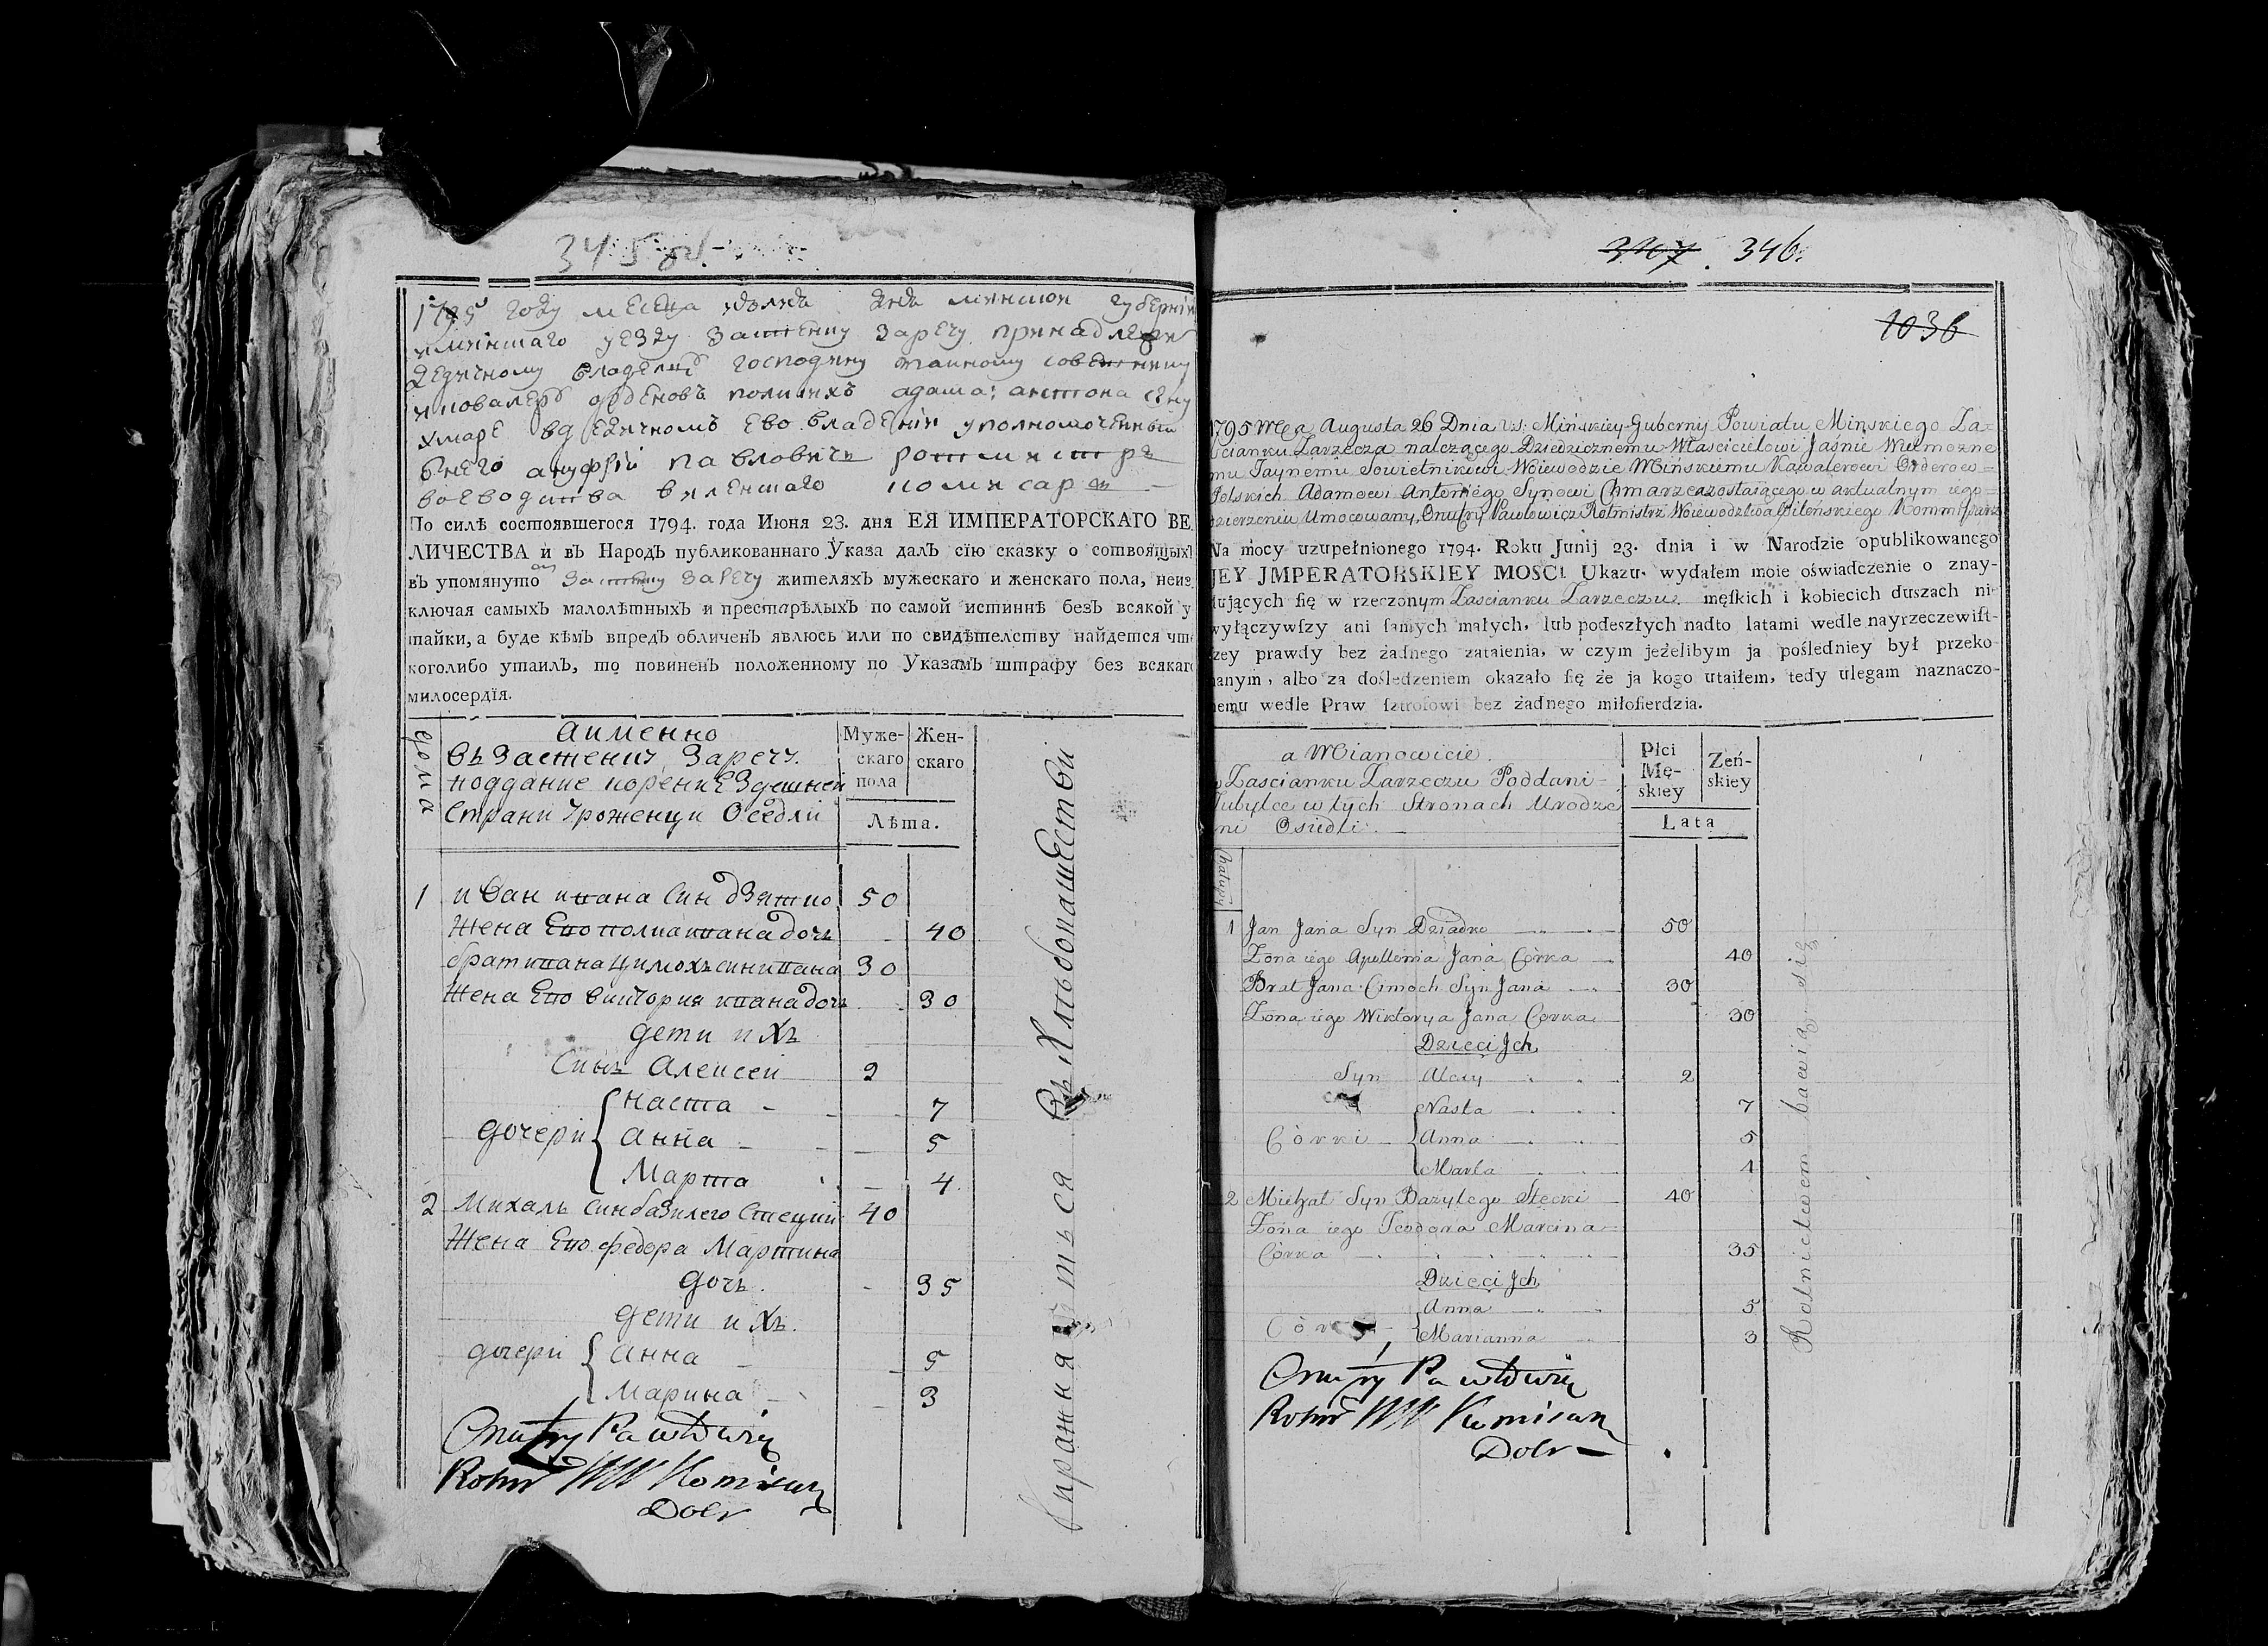 345 об.
1795 году месеца июля дня минской губернии
и миншаго уезду застенку заречу принадлежи
дедичному владелцу господину таиному советнику
и кавалеру орденовъ полских адама антона сину
хмаре в дедичномъ ево владении уполномоченный
в него ануфрій павловичь ротмистръ
воеводства виленшаго комисаръ
По силѣ состоявшегося 1794. года Июня 23. дня ЕЯ ИМПЕРАТОРСКАГО ВЕ
ЛИЧЕСТВА и въ Народъ публикованнаго Указа далъ сїю сказку о сотвоящыхъ
въ упомянуто застенку заречу жителяхъ мужескаго и женскаго пола, неиз
ключая самыхъ малолѣтныхъ и престарѣлыхъ по самой истиннѣ безъ всякой у
тайки, а буде кѣмъ впредъ обличенъ явлюсь или по свидѣтелству найдется что
коголибо утаилъ, то повиненъ положенному по Указамъ штрафу без всякаго
милосердїя.
дома
аименно
въ застенку заречу
поддание корение здешней
страни уроженци оседли
Муже-
скаго
пола
Жен-
скаго
Лѣта.
1 иван ивана син дзятко 50
жена его полиа ивана дочь 40
брат ивана цимохъ син ивана 30
жена его виктория ивана дочь 30
дети ихъ
сынъ Алексей 2
дочери наста 7
анна 5
Марта 4
2 Михалъ син базилего стецкий 40
жена его федора Мартина
дочь 35
дети ихъ
дочери анна 5
марина 3
Onufry Pawłowicz
Rotm WW Komisarz
Dobr
въ Хлѣбопашестви упражняются
307. 346.
1036
1795 Mca Augusta 26 Dnia v.s: Mińskiey Gubernij Powiatu Minskiego Za=
ścianku Zarzecza należącego Dziedzicznemu Własćicielowi Jaśnie Wielmożne
mu Taynemu Sowietnikowi Woiewodzie Mińskiemu Kawalerowi Orderow=
Polskich Adamowi Antoniego Synowi Chmarze zostaiącego w aktualnym iego=
dzierżeniu Umocowany Onufry Pawłowicz Rotmistrz Woiewodztwa Wileńskiego Kommisarz
Na mocy uzupełnionego 1794. Roku Junij 23. dnia i w Narodzie opublikowanego
JEY JMPERATORSKIEY MOSCI Ukazu, wydałem moie oświadczenie o znay-
dujących się w rzeczonym Zascianku Zarzeczu męskich i kobiecich duszach ni-
wyłączywszy ani samych małych, lub podeszłych nadto latami wedle nayrzeczewist-
szey prawdy bez żadnego zataienia, w czym jeżelibym ja pośledniey był przeko
nanym, albo za dośledzeniem okazało się że ja kogo utaiłem, tedy ulegam naznaczo-
nemu wedle Praw sztrofowi bez żadnego miłosierdzia.
a Mianowicie
w Zascianku Zarzeczu Poddani=
Tubylce w tych Stronach Urodze
ni Osiedli
Płci
Mę-
skiey
Zeń-
skiey
Lata
Chałupy
1 Jan Jana Syn Dziadko 50
Zona iego Apollonia Jana Córka 40
Brat Jana Cimoch Syn Jana 30
Zona iego Wiktorya Jana Corka 30
Dzieci Jch
Syn Alexy 2
Nasta 7
Córki Anna 5
Marta 4
2 Michał Syn Bazylego Stecki 40
Zona iego Teodora Marcina
Córka 35
Dzieci Jch
Anna 5
Córki Marianna 3
Onufry Pawłowicz
Rotm WW Komisarz
Dobr
Rolnictwem bawią się